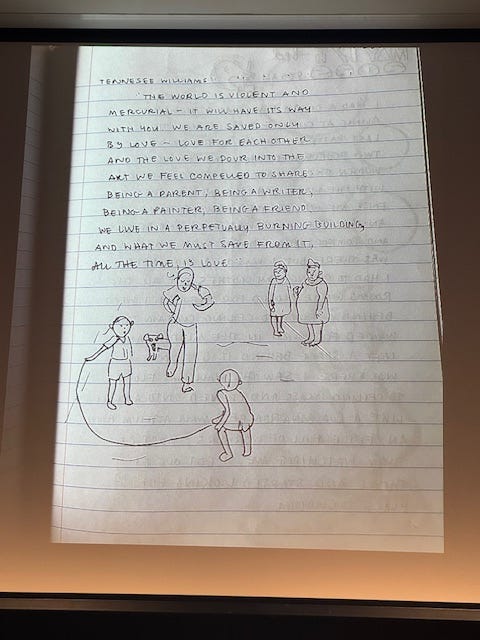 TENNESEE WILLIAMS:
"THE WORLD IS VIOLENT AND
MERCURIAL - IT WILL HAVE ITS WAY
WITH YOU. WE ARE SAVED ONLY
BY LOVE - LOVE FOR EACH OTHER
AND THE LOVE WE POUR INTO THE
ART WE FEEL COMPELLED TO SHARE:
BEING A PARENT; BEING A WRITER;
BEING A PAINTER; BEING A FRIEND.
WE LIVE IN A PERPETUALLY BURNING BUILDING,
AND WHAT WE MUST SAVE FROM IT,
ALL THE TIME, IS LOVE"